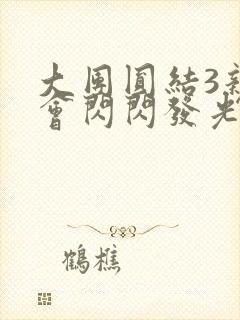 大團圓結3新
會閃閃發光
鶴樵